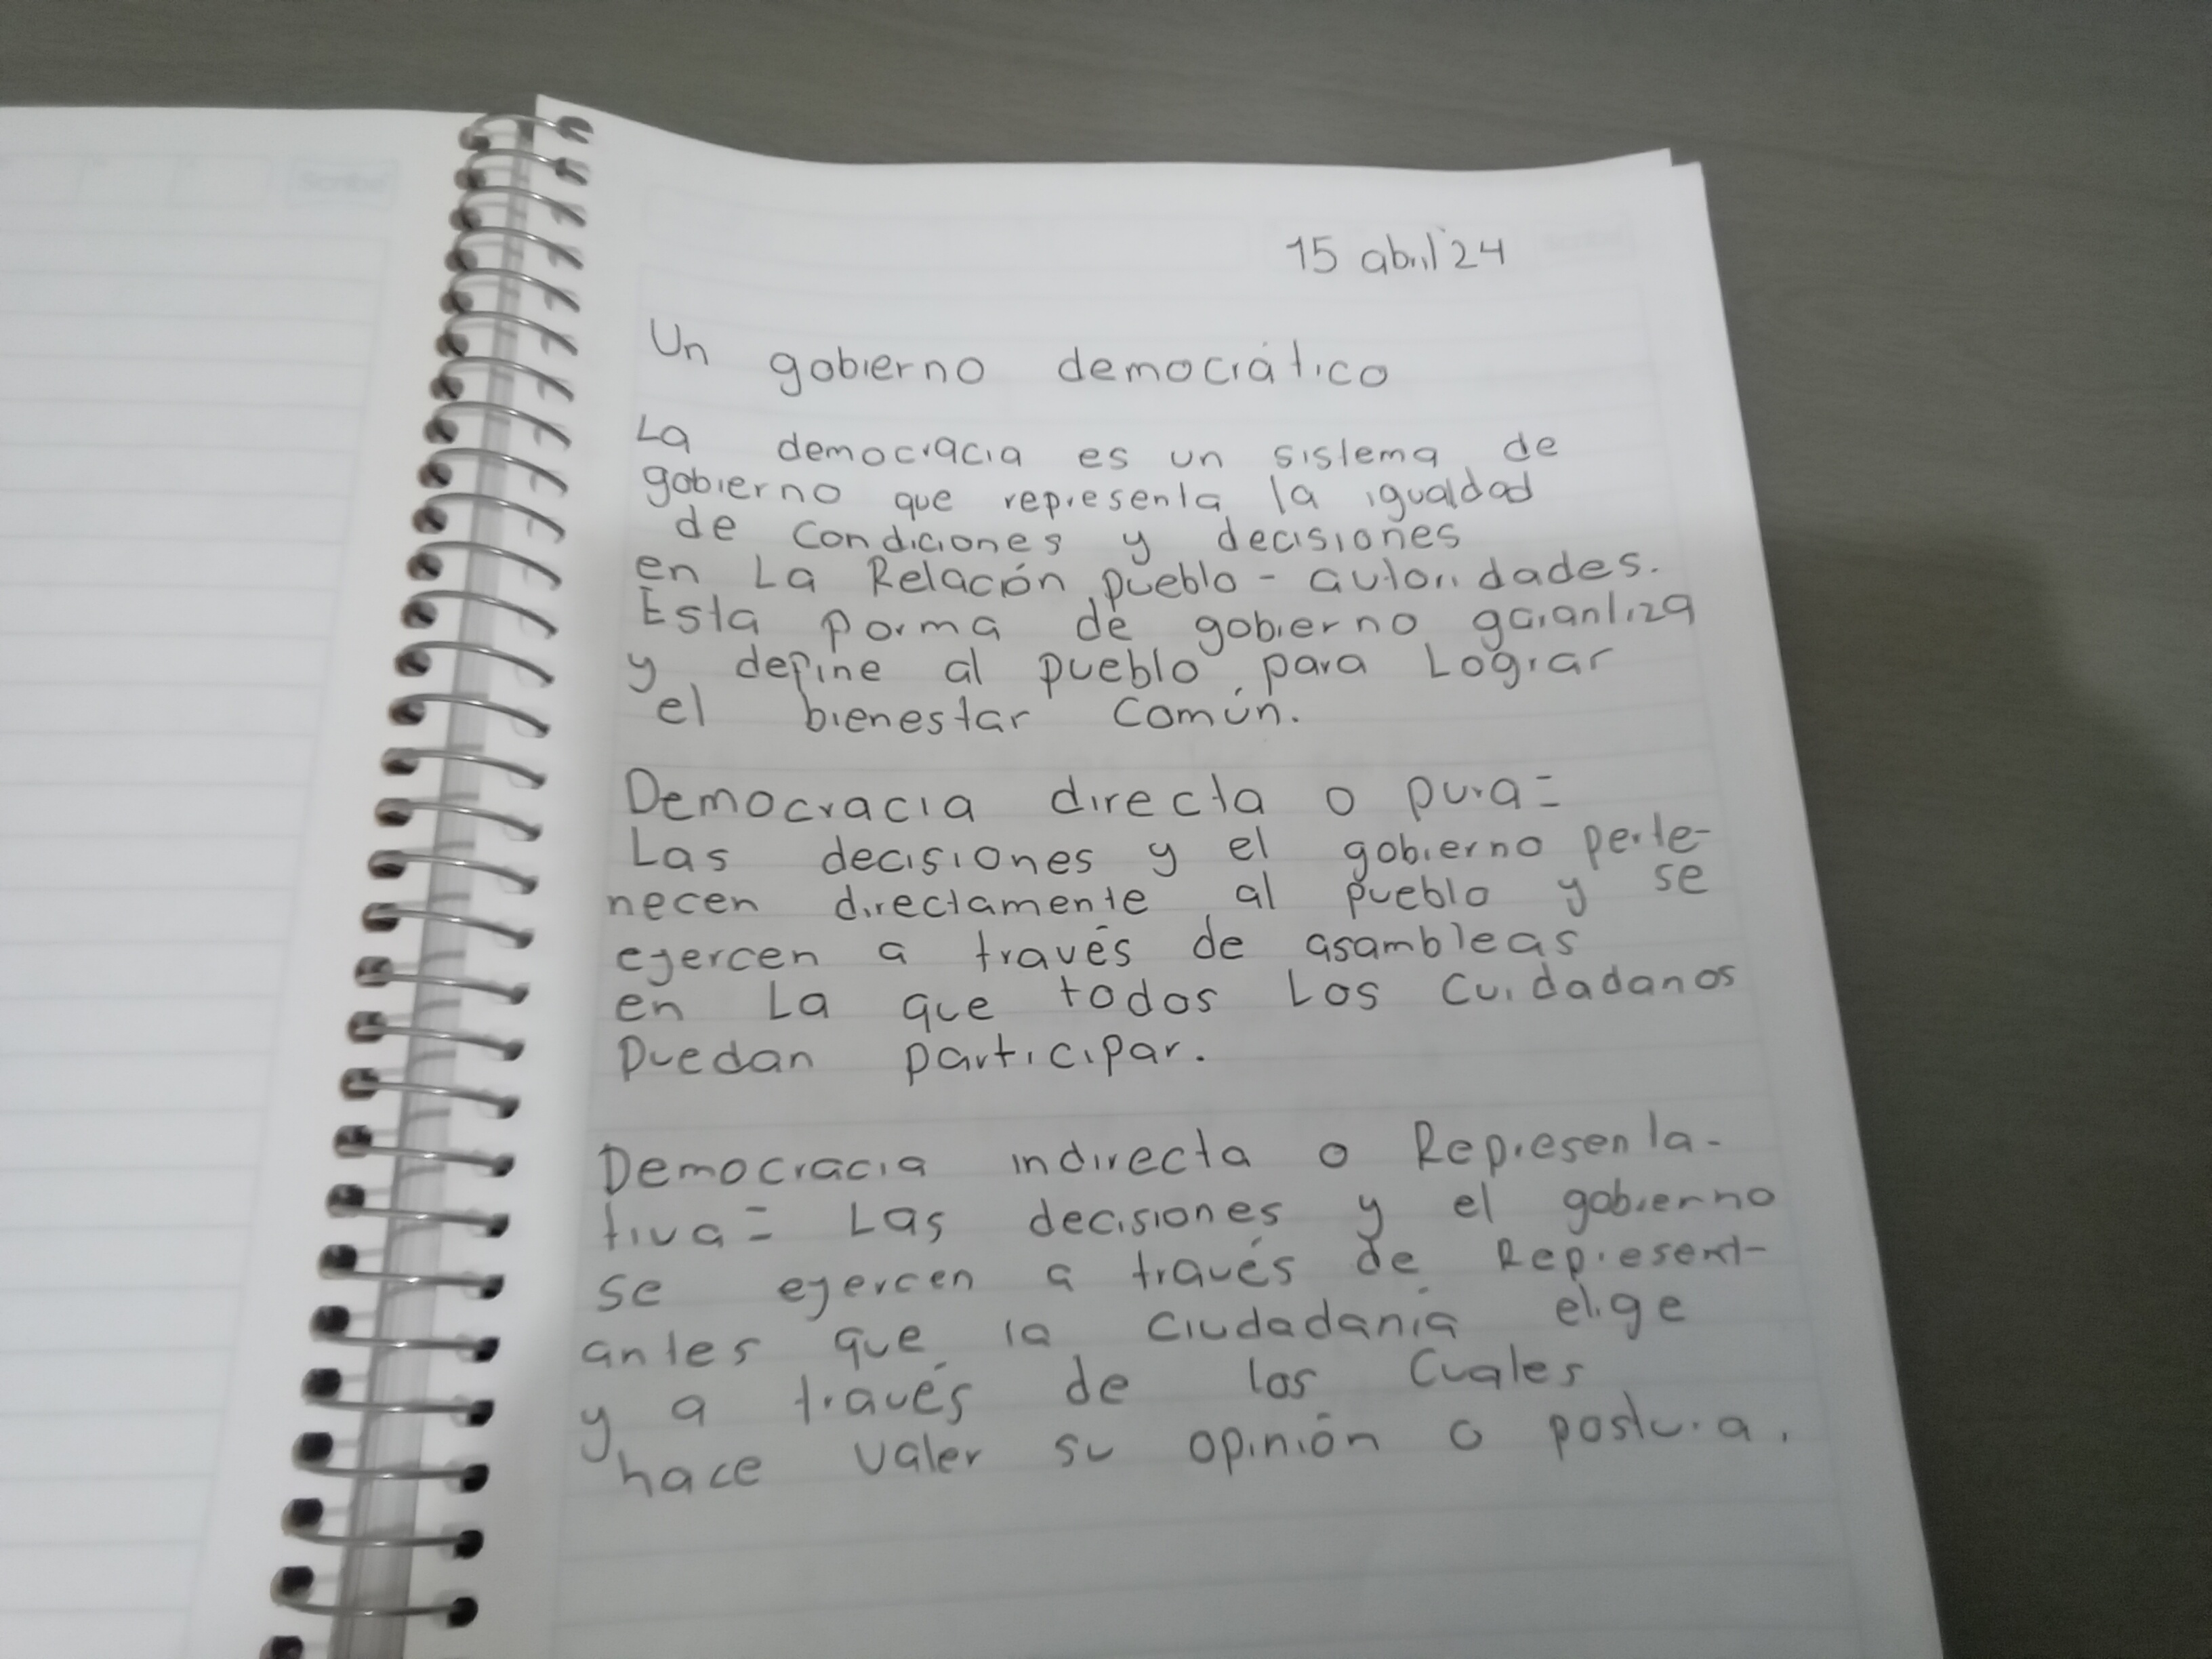 15 abril'24
Un gobierno democrático
La democracia es un sistema de
gobierno que representa la igualdad
de condiciones y decisiones
en La Relación pueblo - autoridades.
Esta porma de gobierno garantiza
y depine al pueblo para Lograr
el bienestar común.
Democracia directa o pura=
Las decisiones y el gobierno perte-
necen directamente al pueblo y se
ejercen a través de asambleas
en La que todos Los Cuidadanos
Puedan participar.
Democracia indirecta o Representa-
tiva= Las decisiones y el gobierno
se ejercen a través de Represent-
antes que la Ciudadanía elige
y a través de los Cuales
hace valer su opinión o postura.